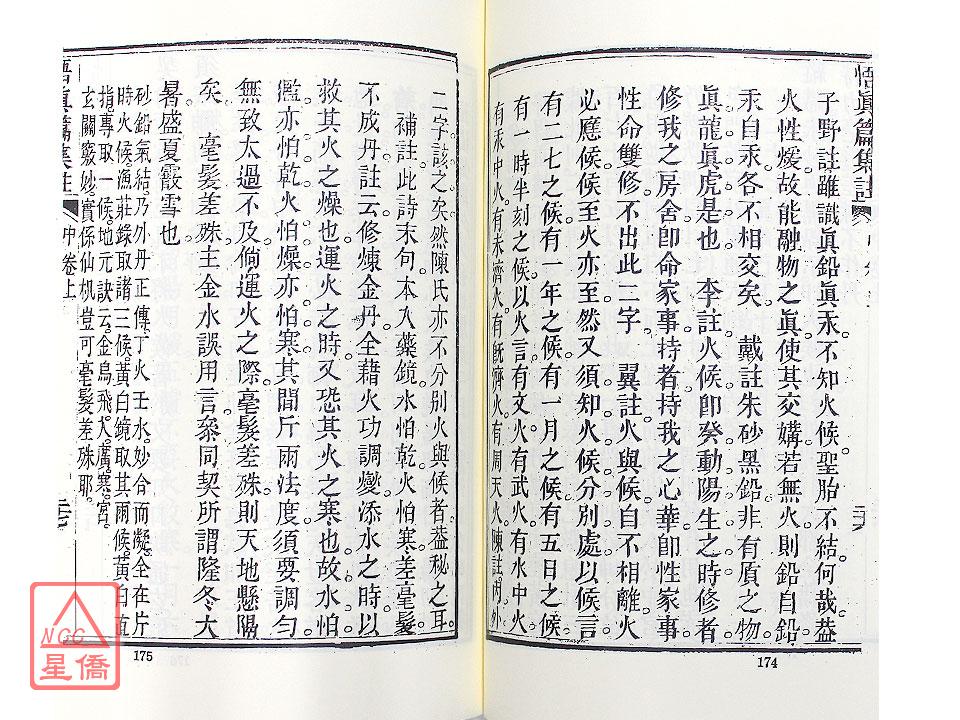 悟眞篇集註
子野註雖識眞鉛眞汞。不知火候。聖胎不結。何哉。蓋
火性煖。故能融物之眞。使其交媾。若無火。則鉛自鉛
汞自汞。各不相交矣。　戴註朱砂黑鉛。非有質之物。
眞龍眞虎是也。　李註火候。卽癸動陽生之時。修者
修我之房舍。卽命家事。持者。持我之心華。卽性家事
性命雙修。不出此二字。　翼註。火與候。自不相離。火
必應候。候至火亦至。然又須知火候分別處。以候言
有二七之候。有一年之候。有一月之候。有五日之候
有一時半刻之候。以火言。有文火。有武火。有水中火
有汞中火。有未濟火。有旣濟火。有周天火。陳註
174
二字該之矣。然陳氏亦不分別火與候者。蓋秘之耳。
補註。此詩末句。本入藥鏡。水怕乾。火怕寒。差毫髮
不成丹。註云。修煉金丹。全藉火功調變。添水之時。以
救其火之燥也。運火之時。又恐其火之寒也。故水怕
濫。亦怕乾。火怕燥。亦怕寒。其間斤兩法度。須要調勻
無致太過不及。倘運火之際。毫髮差殊。則天地懸隔
矣。　毫髮差殊。主金水誤用言。叅同契所謂隆冬大
暑。盛夏霰雪也。
砂鉛氣結。乃外丹正傳。丁火壬水。妙合而凝。全在片
時火候。漁莊錄取諸三候。黃白鏡取其兩候。黃白直
指。專取一候。地元訣云。金烏飛入廣寒宮。
玄關竅妙。實係仙机。豈可毫髮差殊耶。
悟眞篇集註
中卷上
175
NCC
星僑